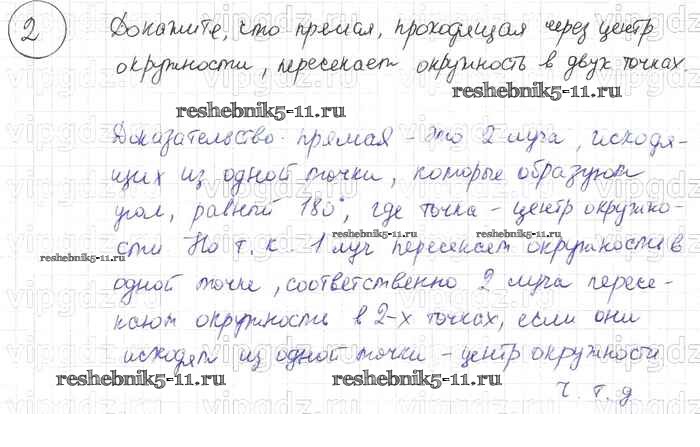 2 Докажите, что прямая, проходящая через центр
окружности, пересекает окружность в двух точках
reshebnik5-11.ru reshebnik5-11.ru
Доказательство. прямая - это 2 луча, исходя-
щих из одной точки, которые образуют
угол, равный 180°, где точка - центр окружно-
reshebnik5-11.ru reshebnik5-11.ru
сти Но т. к 1 луч пересекает окружность в
reshebnik5-11.ru
одной точке, соответственно 2 луча пересе-
кают окружность в 2-х точках, если они
исходят из одной точки - центр окружности
reshebnik5-11.ru reshebnik5-11.ru
ч. т. д